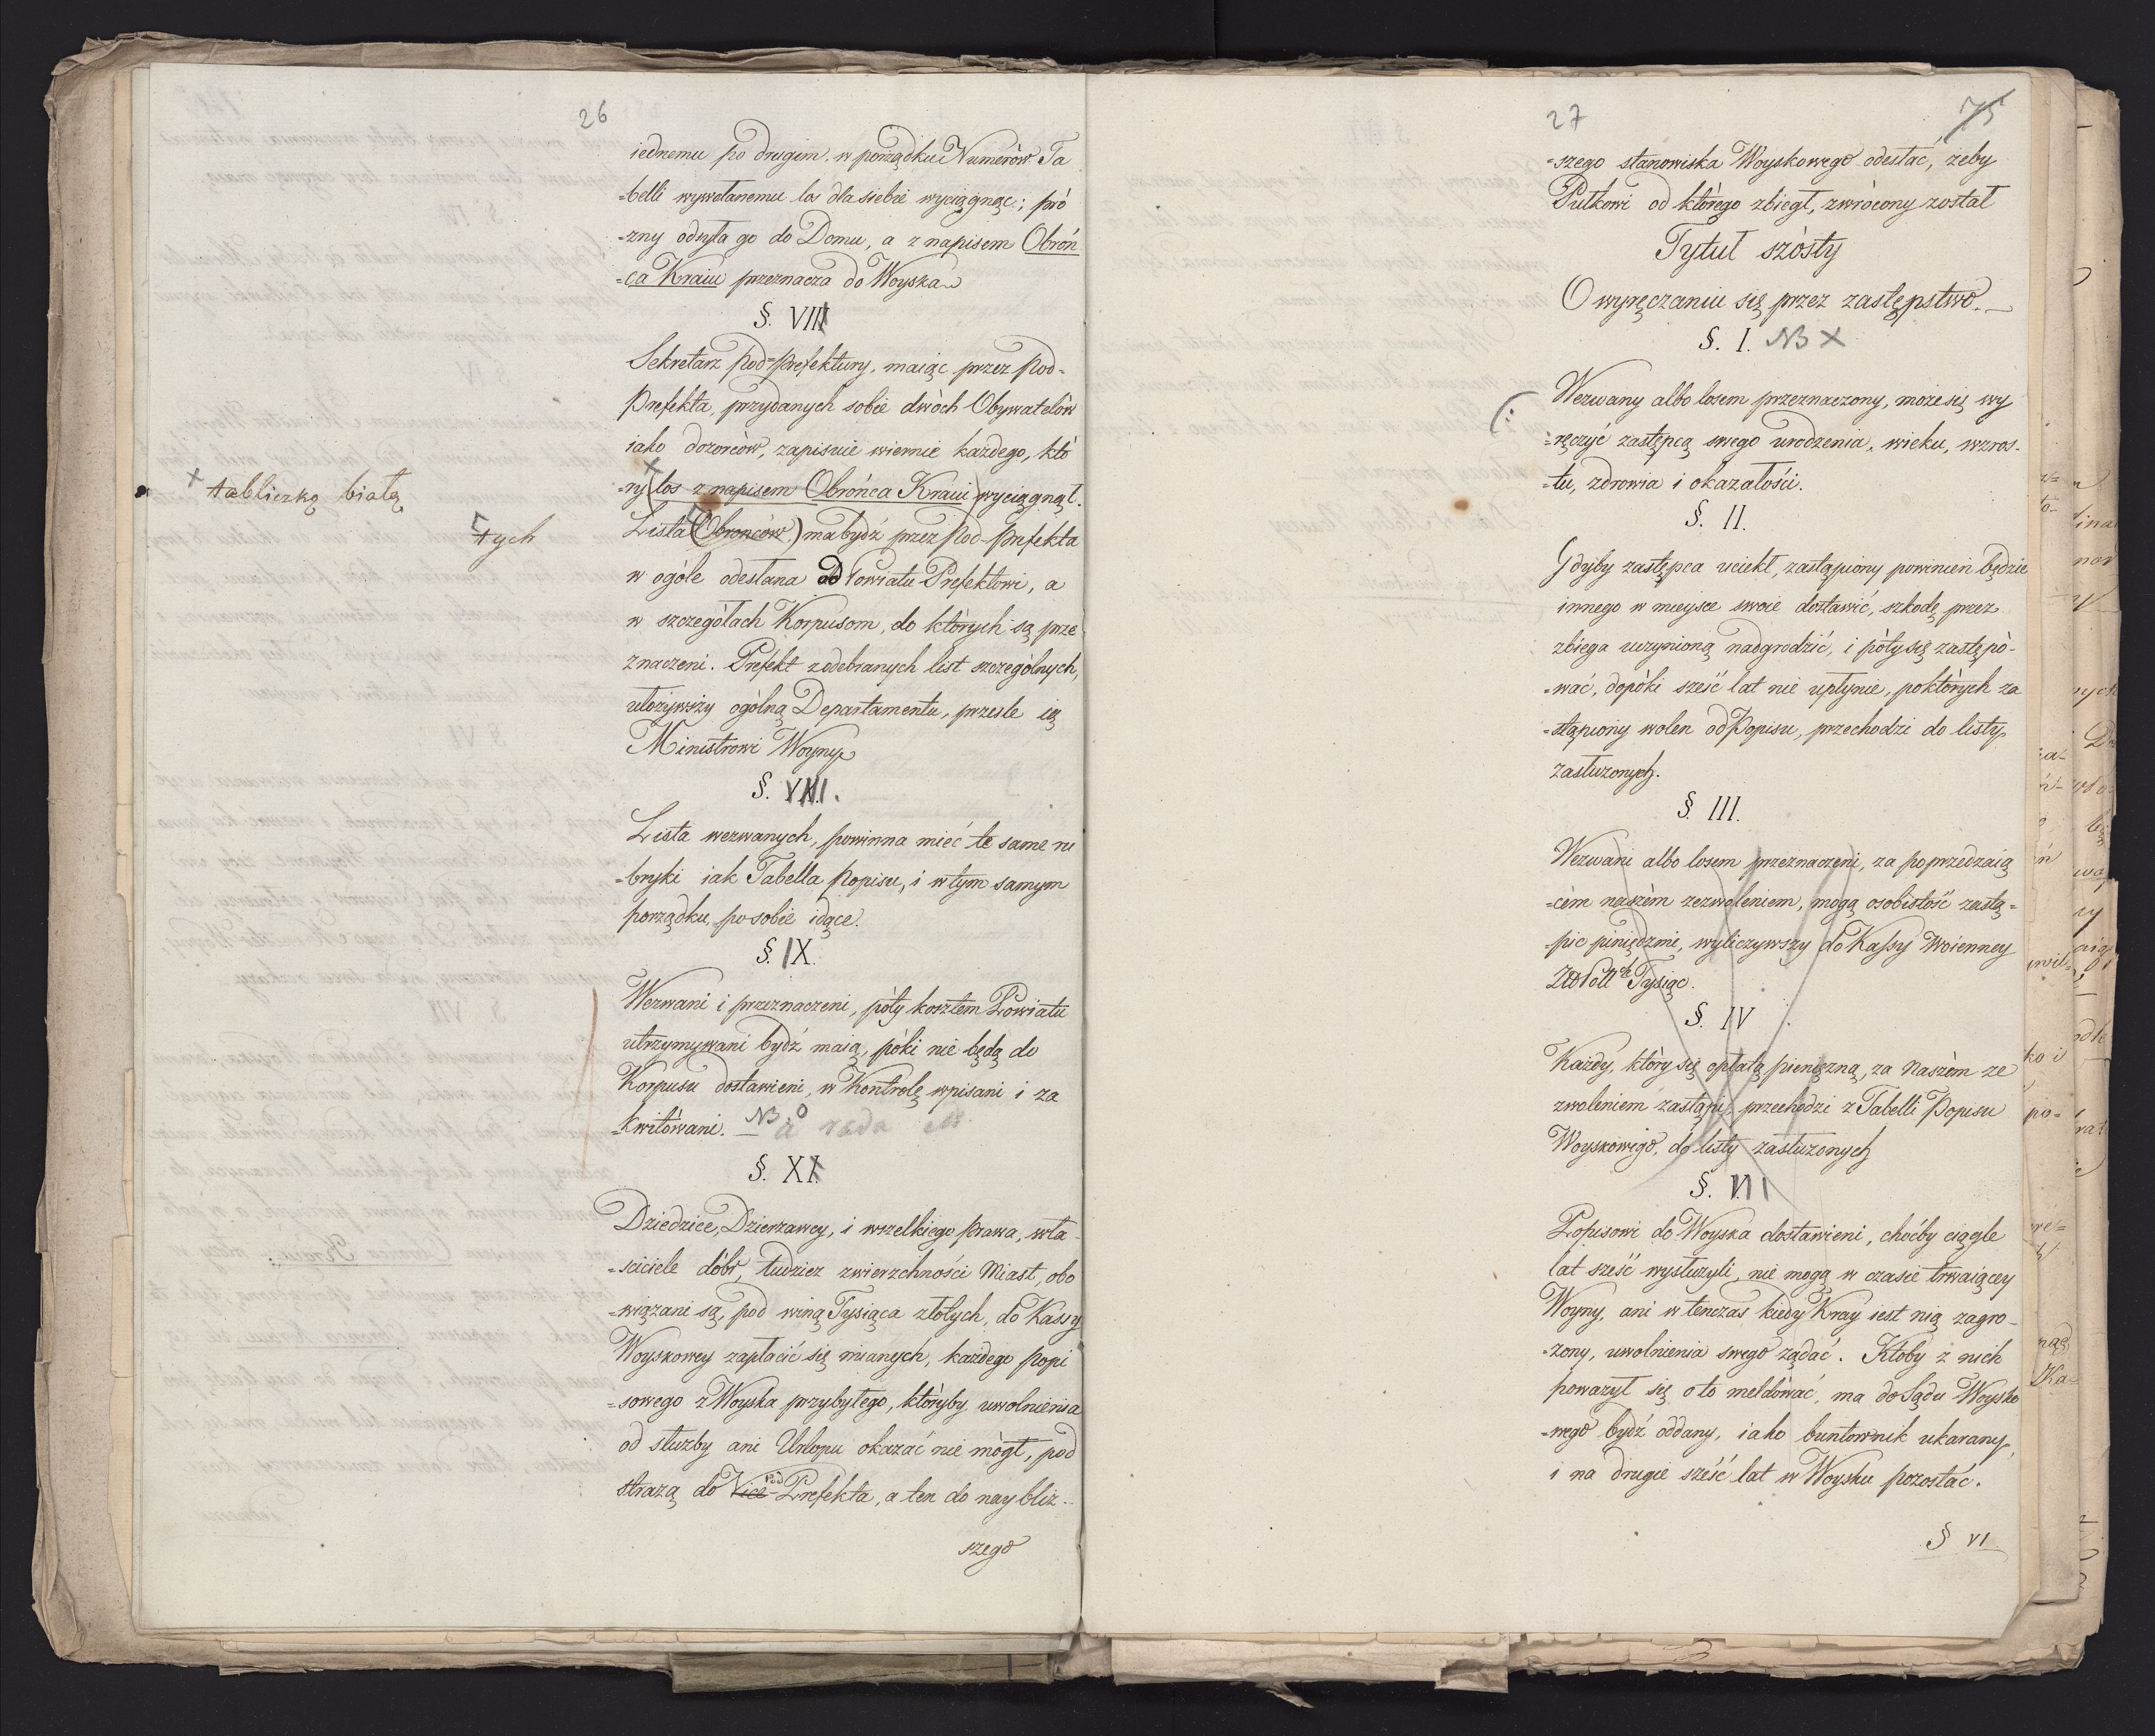 26
iednemu po drugim, w porządku Numerów Ta
=belli wywołanemu los dla siebie wyciągnąć; pró
=zny odsyła go do Domu, a z napisem Obroń
=ca Kraiu przeznacza do Woyska
§. VIII
Sekretarz Pod=Prefektury, maiąc przez Pod=
Prefekta, przydanych sobie dwóch Obywatelów
iako dozorców, zapisuie wiernie każdego, któ
=ry los z napisem Obrońca Kraiu wyciągnął.
+ tabliczkę białą
Lista (Obrońców) ma bydź przez Pod-Prefekta
tych
w ogóle odesłana od Powiatu Prefektowi, a
w szczegółach Korpusom, do których są prze
znaczeni. Prefekt z odebranych list szczególnych,
ułożywszy ogólną Departamentu, przesle ią
Ministrowi Woyny
§. VIII.
Lista wezwanych, powinna mieć te same ru
=bryki iak Tabella Popisu, i w tym samym
porządku po sobie idące.
§. IX.
Wezwani i przeznaczeni, póty kosztem Powiatu
utrzymywani bydź maią, póki nie będą do
Korpusu dostawieni, w Kontrolę wpisani i za
=kwitówani. NB
§. XI
Dziedzice, Dzierzawcy, i wszelkiego prawa, wła
=sciciele dóbr, tudziez zwierzchności Miast, obo
=wiązani są, pod winą Tysiąca złotych, do Kassy
Woyskowey zapłacić się mianych, każdego popi
=sowego z Woyska przybyłego, któryby uwolnienia
od służby ani Urlopu okazać nie mógł, pod
strazą do Vice-Pod Prefekta, a ten do naybliz-
szego
27
75
=szego stanowiska Woyskowego odesłać, żeby
Pułkowi od którego zbiegł, zwrócony został
Tytuł szósty
O wyręczaniu się przez zastępstwo.
§. I. NB X
Wezwany albo losem przeznaczony, może się wy
=ręczyć zastępcą swego urodzenia, wieku, wzros-
=tu, zdrowia i okazałości.
§. II.
Gdyby zastępca uciekł, zastąpiony powinien będzie
innego w mieysce swoie dostawić, szkodę przez
zbiega uczynioną nadgrodzić, i póty się zastępo-
=wać, dopóki sześć lat nie upłynie, po których za
=stąpiony wolen od Popisu, przechodzi do listy
zasłuzonych.
§. III.
Wezwani albo losem przeznaczeni, za poprzedzaią
=cém naszém zezwoleniem, mogą osobistość zastą=
=pić pieniędzmi, wyliczywszy do Kassy Woienney
Tysiąc.
§. IV
Każdy, który się opłatą pieniężną, za Naszém ze
zwoleniem zastąpi, przechodzi z Tabelli Popisu
Woyskowego, do listy zasłuzonych
§. VII
Popisowi do Woyska dostawieni, choćby ciągle
lat sześć wysłużyli, nie mogą w czasie trwaiącey
Woyny, ani w tenczas kiedy Kray iest nią zagro-
=zony, uwolnienia swego żądać. Któby z nich
poważył się o to meldować, ma do Sądu Woysko
=wego bydź oddany, iako buntownik ukarany,
i na drugie sześć lat w Woysku pozostać.
§ VI